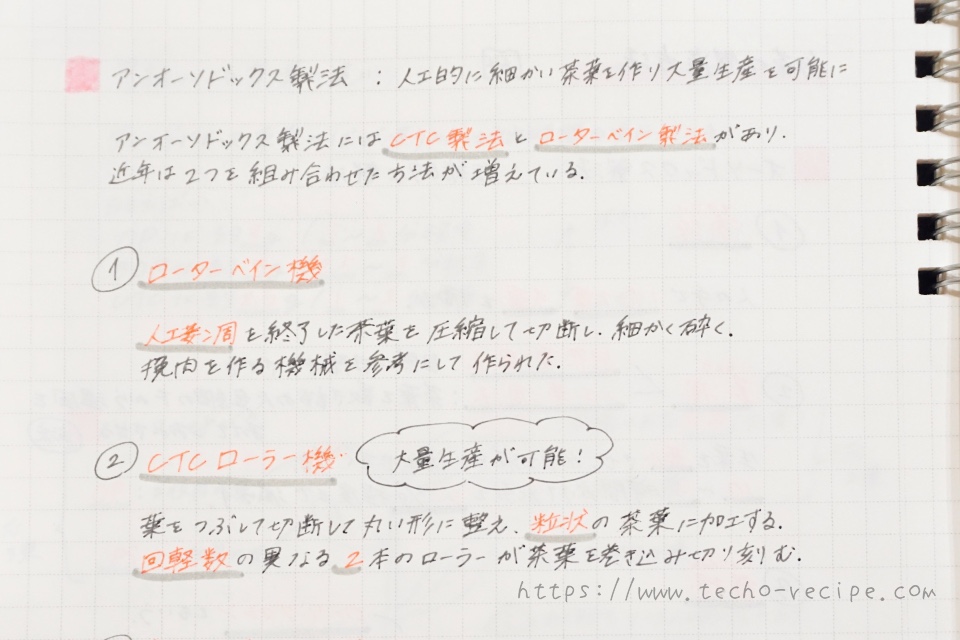 アンオーソドックス製法 : 人工的に細かい茶葉を作り大量生産を可能に
アンオーソドックス製法にはCTC製法とローターベイン製法があり、
近年は2つを組み合わせた方法が増えている。
① ローターベイン機
人工萎凋を終了した茶葉を圧縮して切断し、細かく砕く。
挽肉を作る機械を参考にして作られた。
② CTCローラー機
大量生産が可能!
葉をつぶして切断して丸い形に整え、粒状の茶葉に加工する。
回転数の異なる2本のローラーが茶葉を巻き込み切り刻む。
https://www.techo-recipe.com